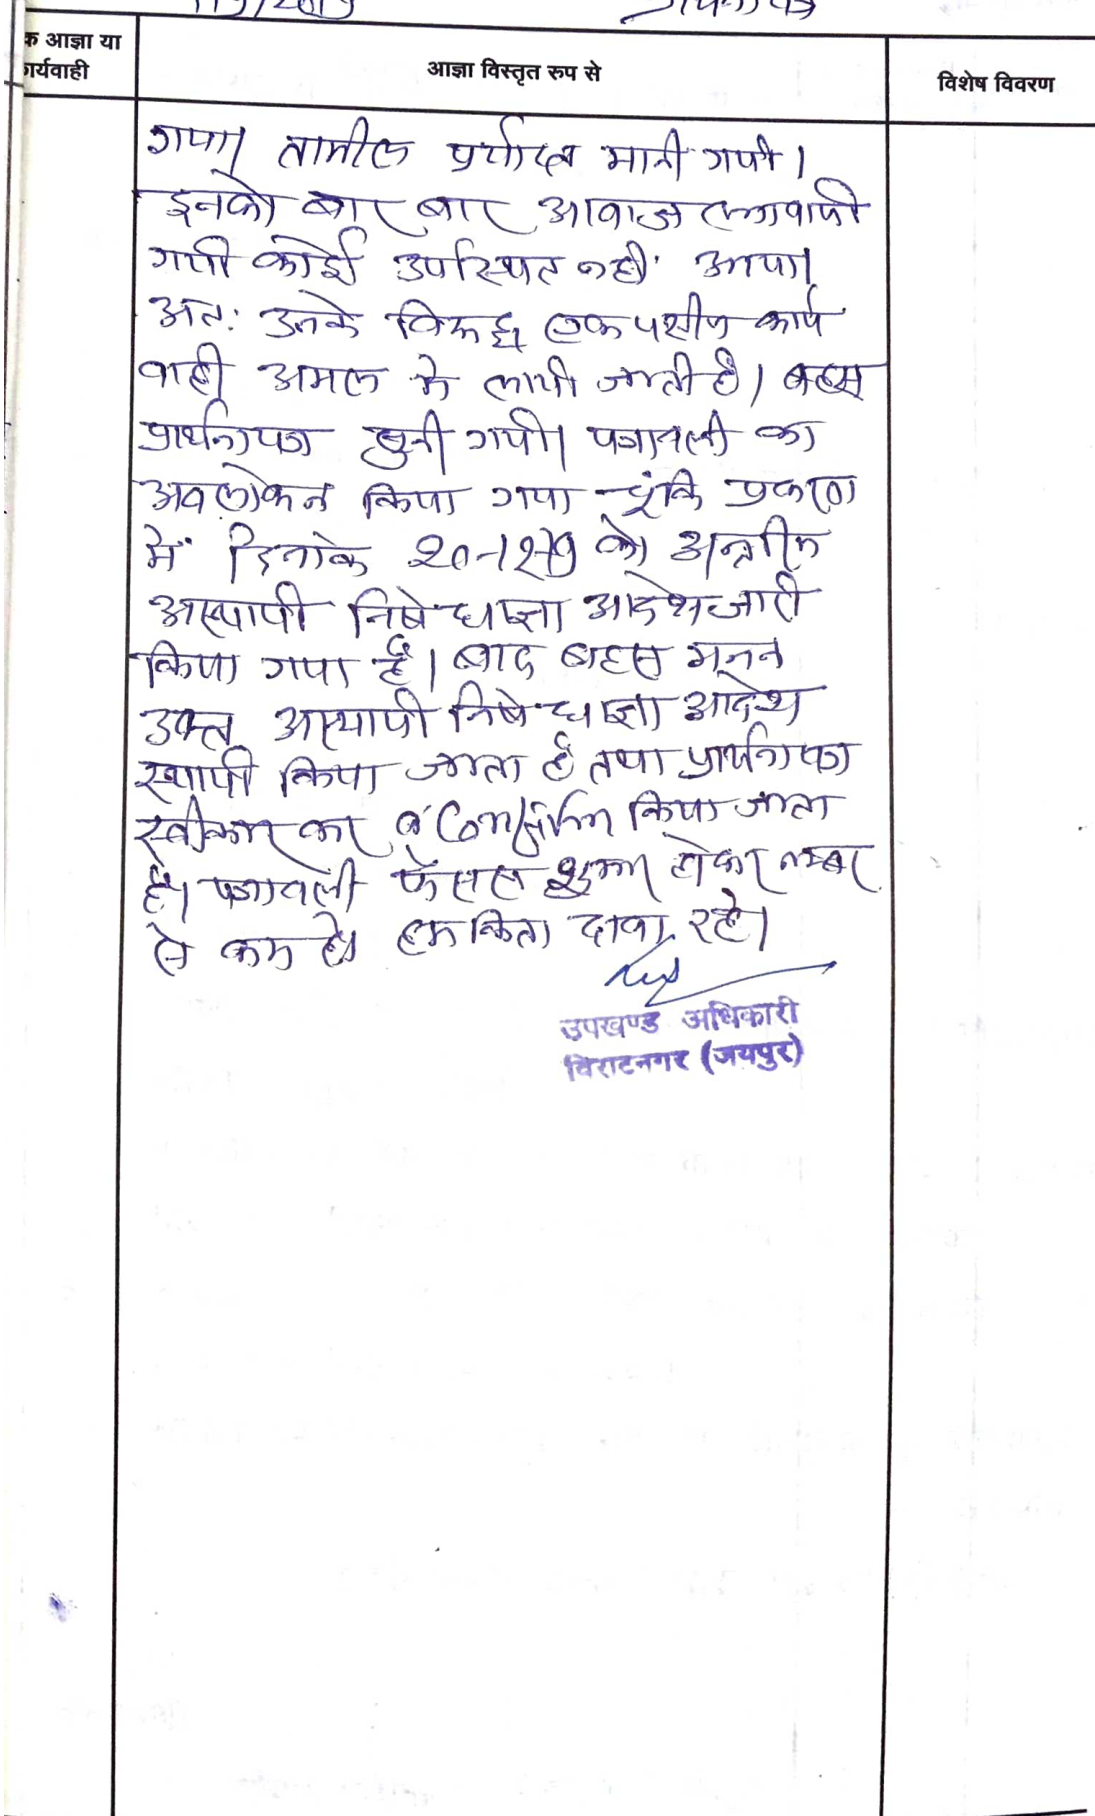 क आज्ञा या
ार्यवाही
आज्ञा विस्तृत रुप से
विशेष विवरण
गया। तामील पर्याप्त मानी गयी।
इनको बार बार आवाज लगवायी
गयी कोई उपस्थित नही आया।
अतः उनके विरूद्ध एक पक्षीय कार्य
वाही अमल मे लायी जाती है। बहस
प्रार्थनापत्र सुनी गयी। पत्रावली का
अवलोकन किया गया चूंकि प्रकरण
में दिनांक 20-12-19 को अन्तरिम
अस्थायी निषेधाज्ञा आदेश जारी
किया गया है। बाद बहस
उक्त अस्थायी निषेधाज्ञा आदेश
स्थायी किया जाता है तथा प्रार्थनापत्र
स्वीकार कर Confirm किया जाता
है। पत्रावली फैसल शुमार होकर नम्बर
से कम हो। दावा रहे।
उपखण्ड अधिकारी
विराटनगर (जयपुर)